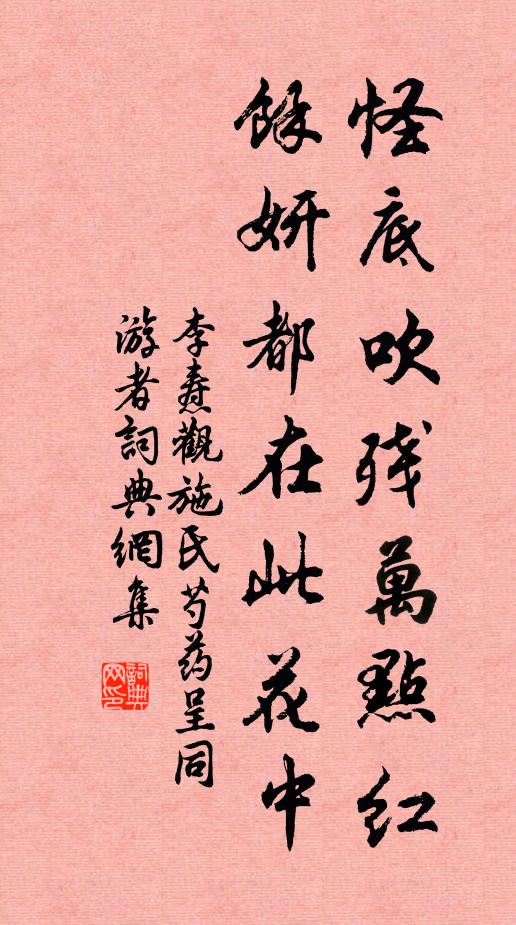 怪底吹残萬點紅
餘妍都在此花中
李焘觀施氏芍药呈同
游者詞典網集
詞典
网印